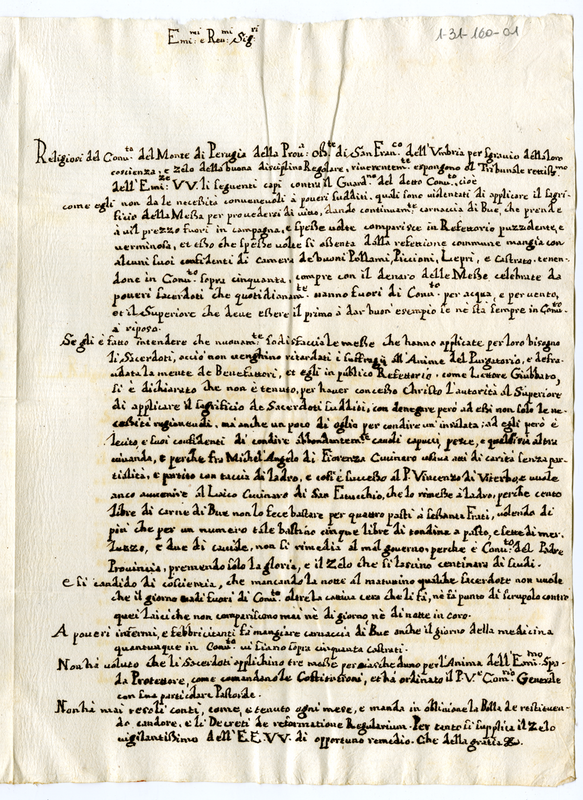 Emi:^mi e Reu:^mi Sig:^ri
1-31-160-01
Religiosi del Conu:^to del Monte di Perugia della Prou:^a Oss:^te di San Fran:^co dell'Vmbria per sgrauio della loro
coscienza, e zelo della buona disciplina Regolare, riuerentem:^te espongono al Tribunale rettiss:^mo
dell'Emi:^ze VV. li seguenti capi contra il Guard:^no del detto Conu:^to, cioè
come egli non da le necessità conueneuoli à poueri sudditi, quali sono violentati di applicare il sagri-
fitio della Messa per prouedersi di vitto, dando continuam:^te carnaccia di Bue, che prende
à uil prezzo fuori in campagna, e spesse volte comparisce in Refettorio puzzidente, e
verminosa, et esso che spesse volte si assenta dalla refettione commune mangia con
alcuni suoi confidenti di camera de buoni Pollami, Piccioni, Lepri, e Castrato, tenen-
done in Conu:^to sopra cinquanta, compre con il denaro delle Messe celebrate da
poueri sacerdoti che quotidianam:^te uanno fuori di Conu:^to per acqua, e per vento,
et il Superiore che deue essere il primo à dar buon esempio se ne stà sempre in Conu:^to
à riposo.
Se gli è fatto intendere che nuouam:^te sodisfaccia le messe che hanno applicate per loro bisogno
li Sacerdoti, acciò non uenghino ritardati i suffragij all'Anime del Purgatorio, e defra-
udata la mente de Benefattori, et egli in publico Refettorio, come Lettore Giubbato,
si è dichiarato che non è tenuto, per hauer concesso Christo l'autorità al Superiore
di applicare il sagrificio de Sacerdoti sudditi, con denegare però ad essi non solo le ne-
cessità religiose, mà anche un poco di oglio per condire un'insalata; ad egli però è
lecito, e suoi confidenti di condire abbondantem:^te caudi capucci, pesce, e qualsiuia altra
viuanda, e perche fra Michel Angelo di Fiorenza Cucinero usaua atti di carità senza par-
tialità, è partito con taccia di ladro, e così è successo al P. Vincenzo di Viterbo, e vuole
anco auuenire al Laico Cucinaro di San Fatucchio, che lo rimesse à ladro, perche cento
libre di carne di Bue non lo fece bastare per quattro pasti à sessanta Frati, volendo di
più che per un numero tale bastino cinque libre di tondina a pasto, e sette di mer-
luzzo, e due di cauiale, non si rimedia al mal gouerno, perche è Conu:^to del Padre
Prouincia, premendo solo la gloria, e il zelo che si lascino centinara di scudi.
e si candido di coscientia, che mancando la notte al matutino qualche sacerdote non uuole
che il giorno uadi fuori di Conu:^to, oltre la cattiua cera che li fà, nè fà punto di scrupolo contro
quei Laici che non compariscono mai nè di giorno, nè di notte in coro.
A poueri infermi, e febbricitanti fà mangiare carnaccia di Bue anche il giorno della medicina
quantunque in Conu:^to ui siano sopra cinquanta castrati.
Non hà voluto che li Sacerdoti applichino tre messe per ciascheduno per l'Anima dell'Emi:^mo Spa-
da Protettore, come comandano le Costitutioni, et hà ordinato il P. V.^e Com:^rio Generale
con sua particolare Pastorale.
Non hà mai resoli conti, come, è tenuto ogni mese, e manda in obliuione la Bolla de restituen-
do candore, e li Decreti de reformatione Regularium. Per tanto si supplica il zelo
vigilantissimo dell'EE.VV. di opportuno remedio. Che della gratia &c.